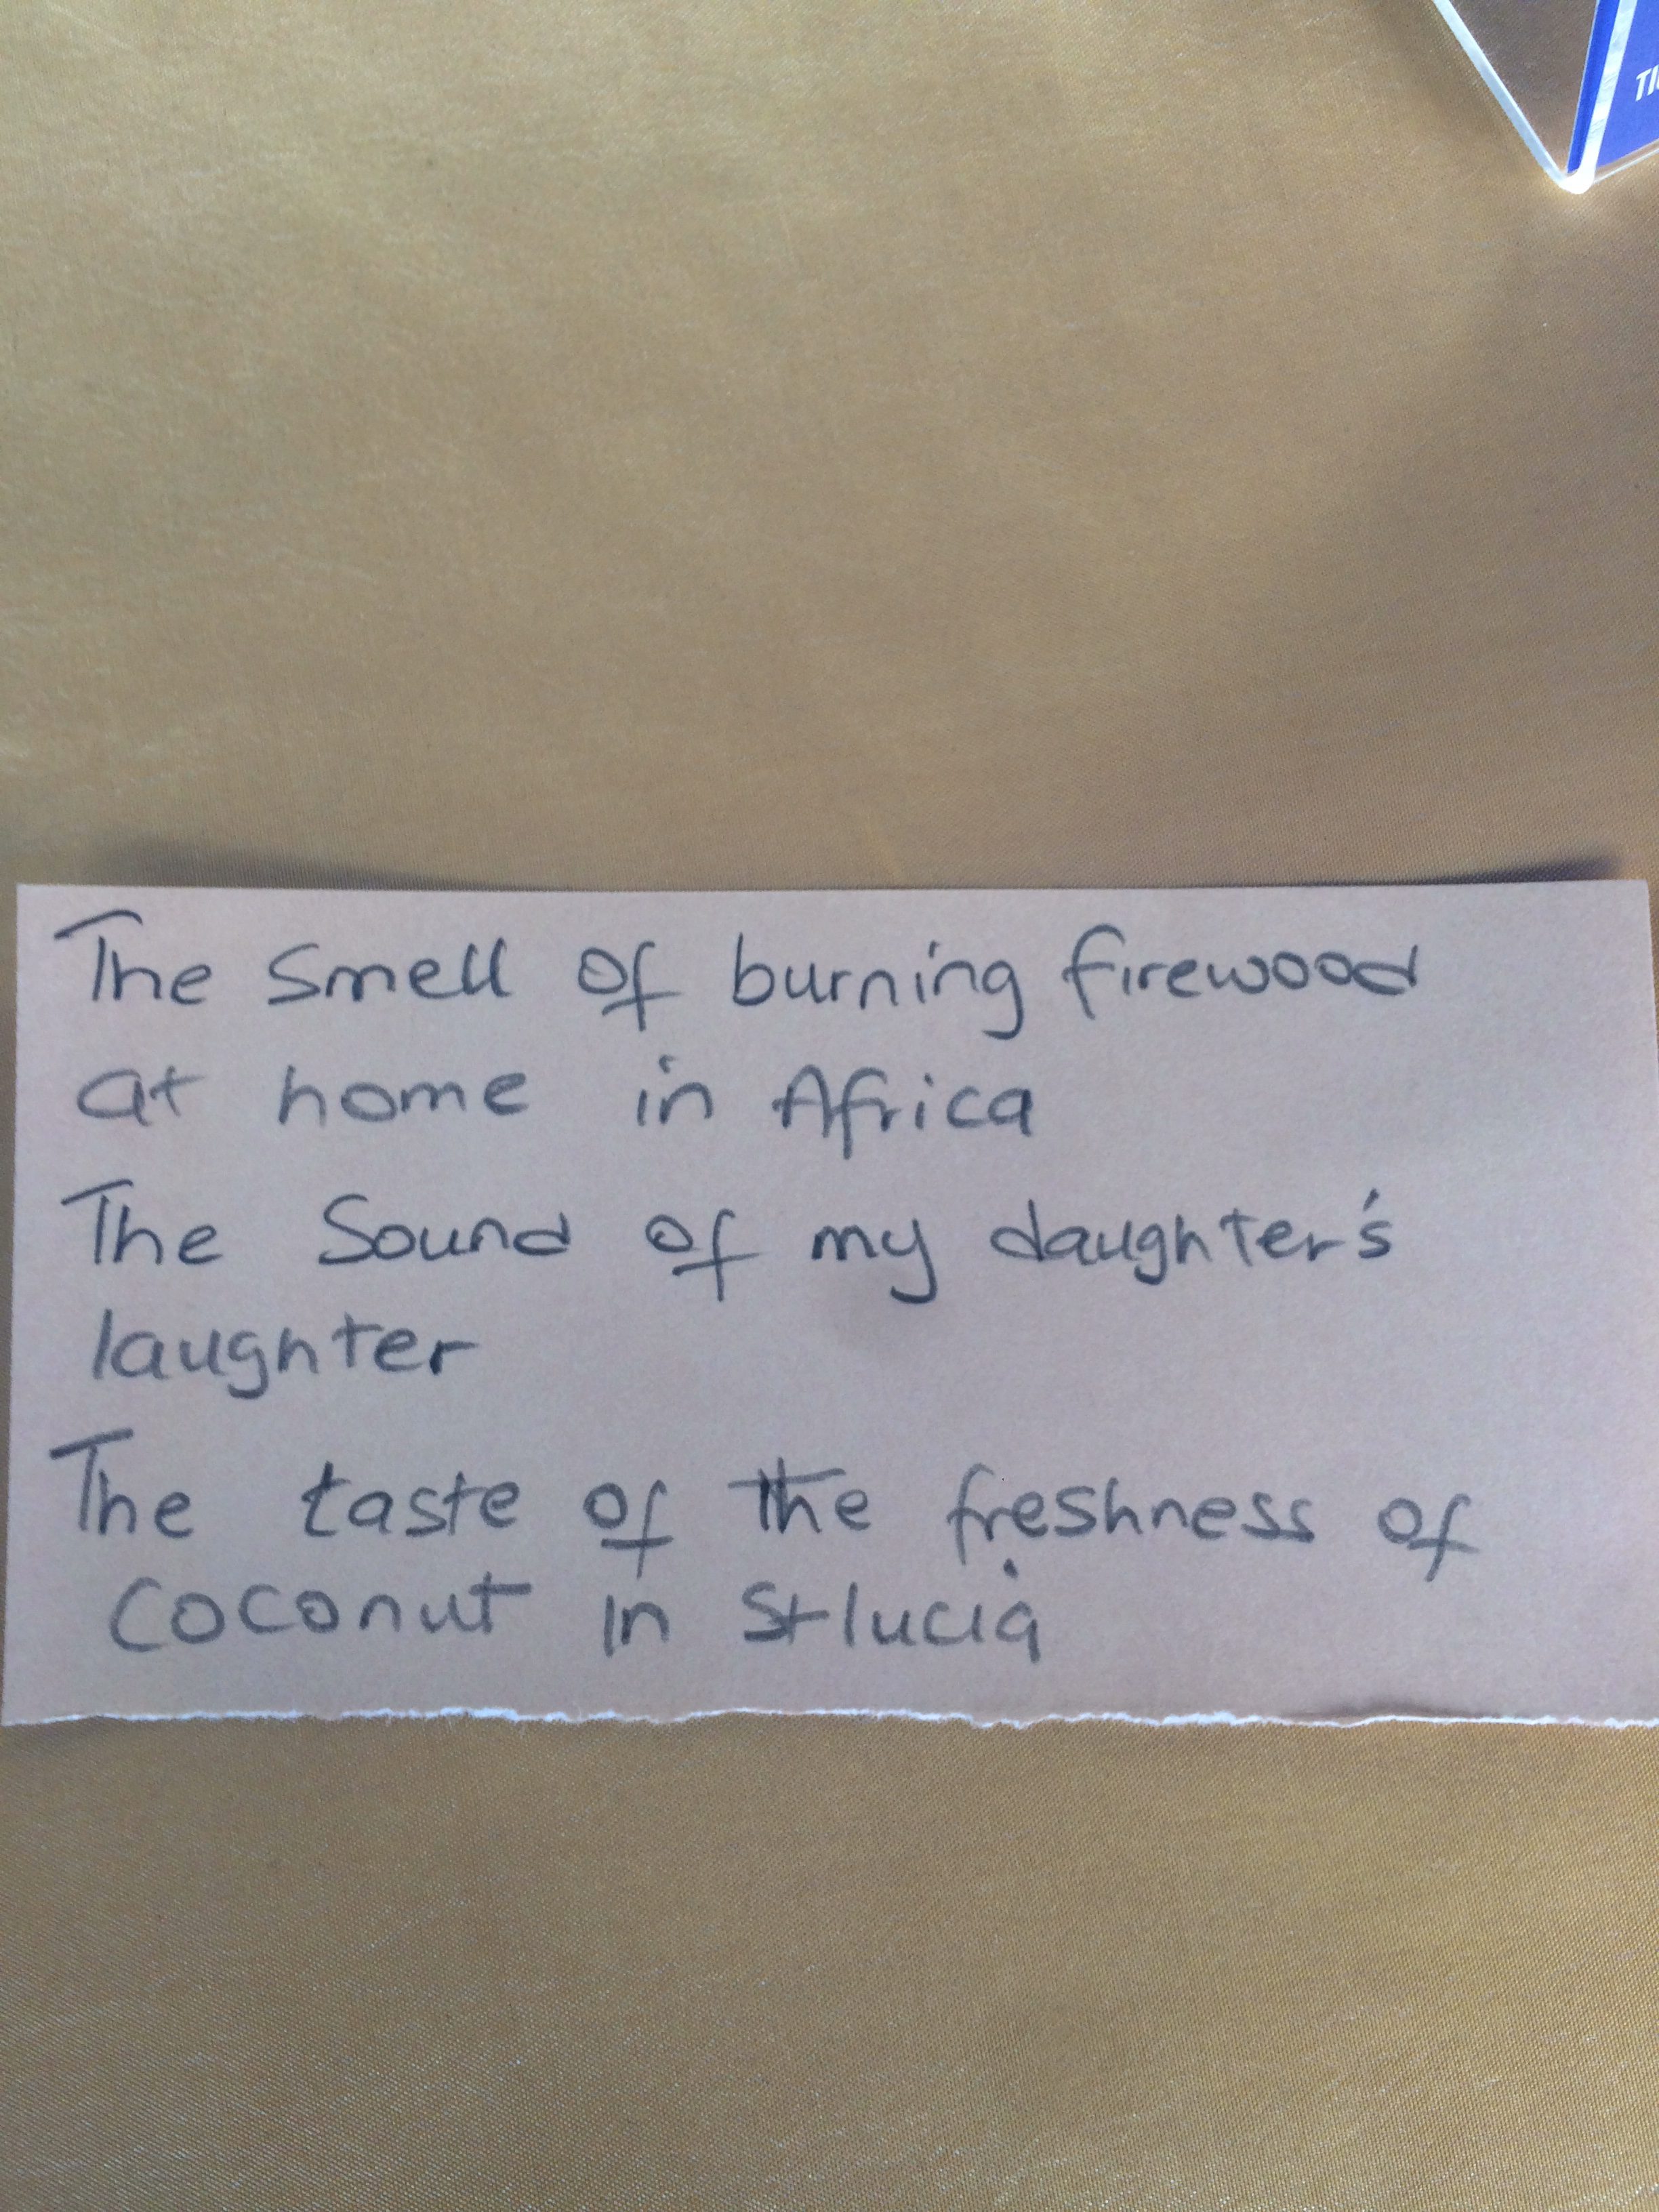 The Smell of burning firewood
at home in Africa
The Sound of my daughter's
laughter
The taste of the freshness of
Coconut in St lucia